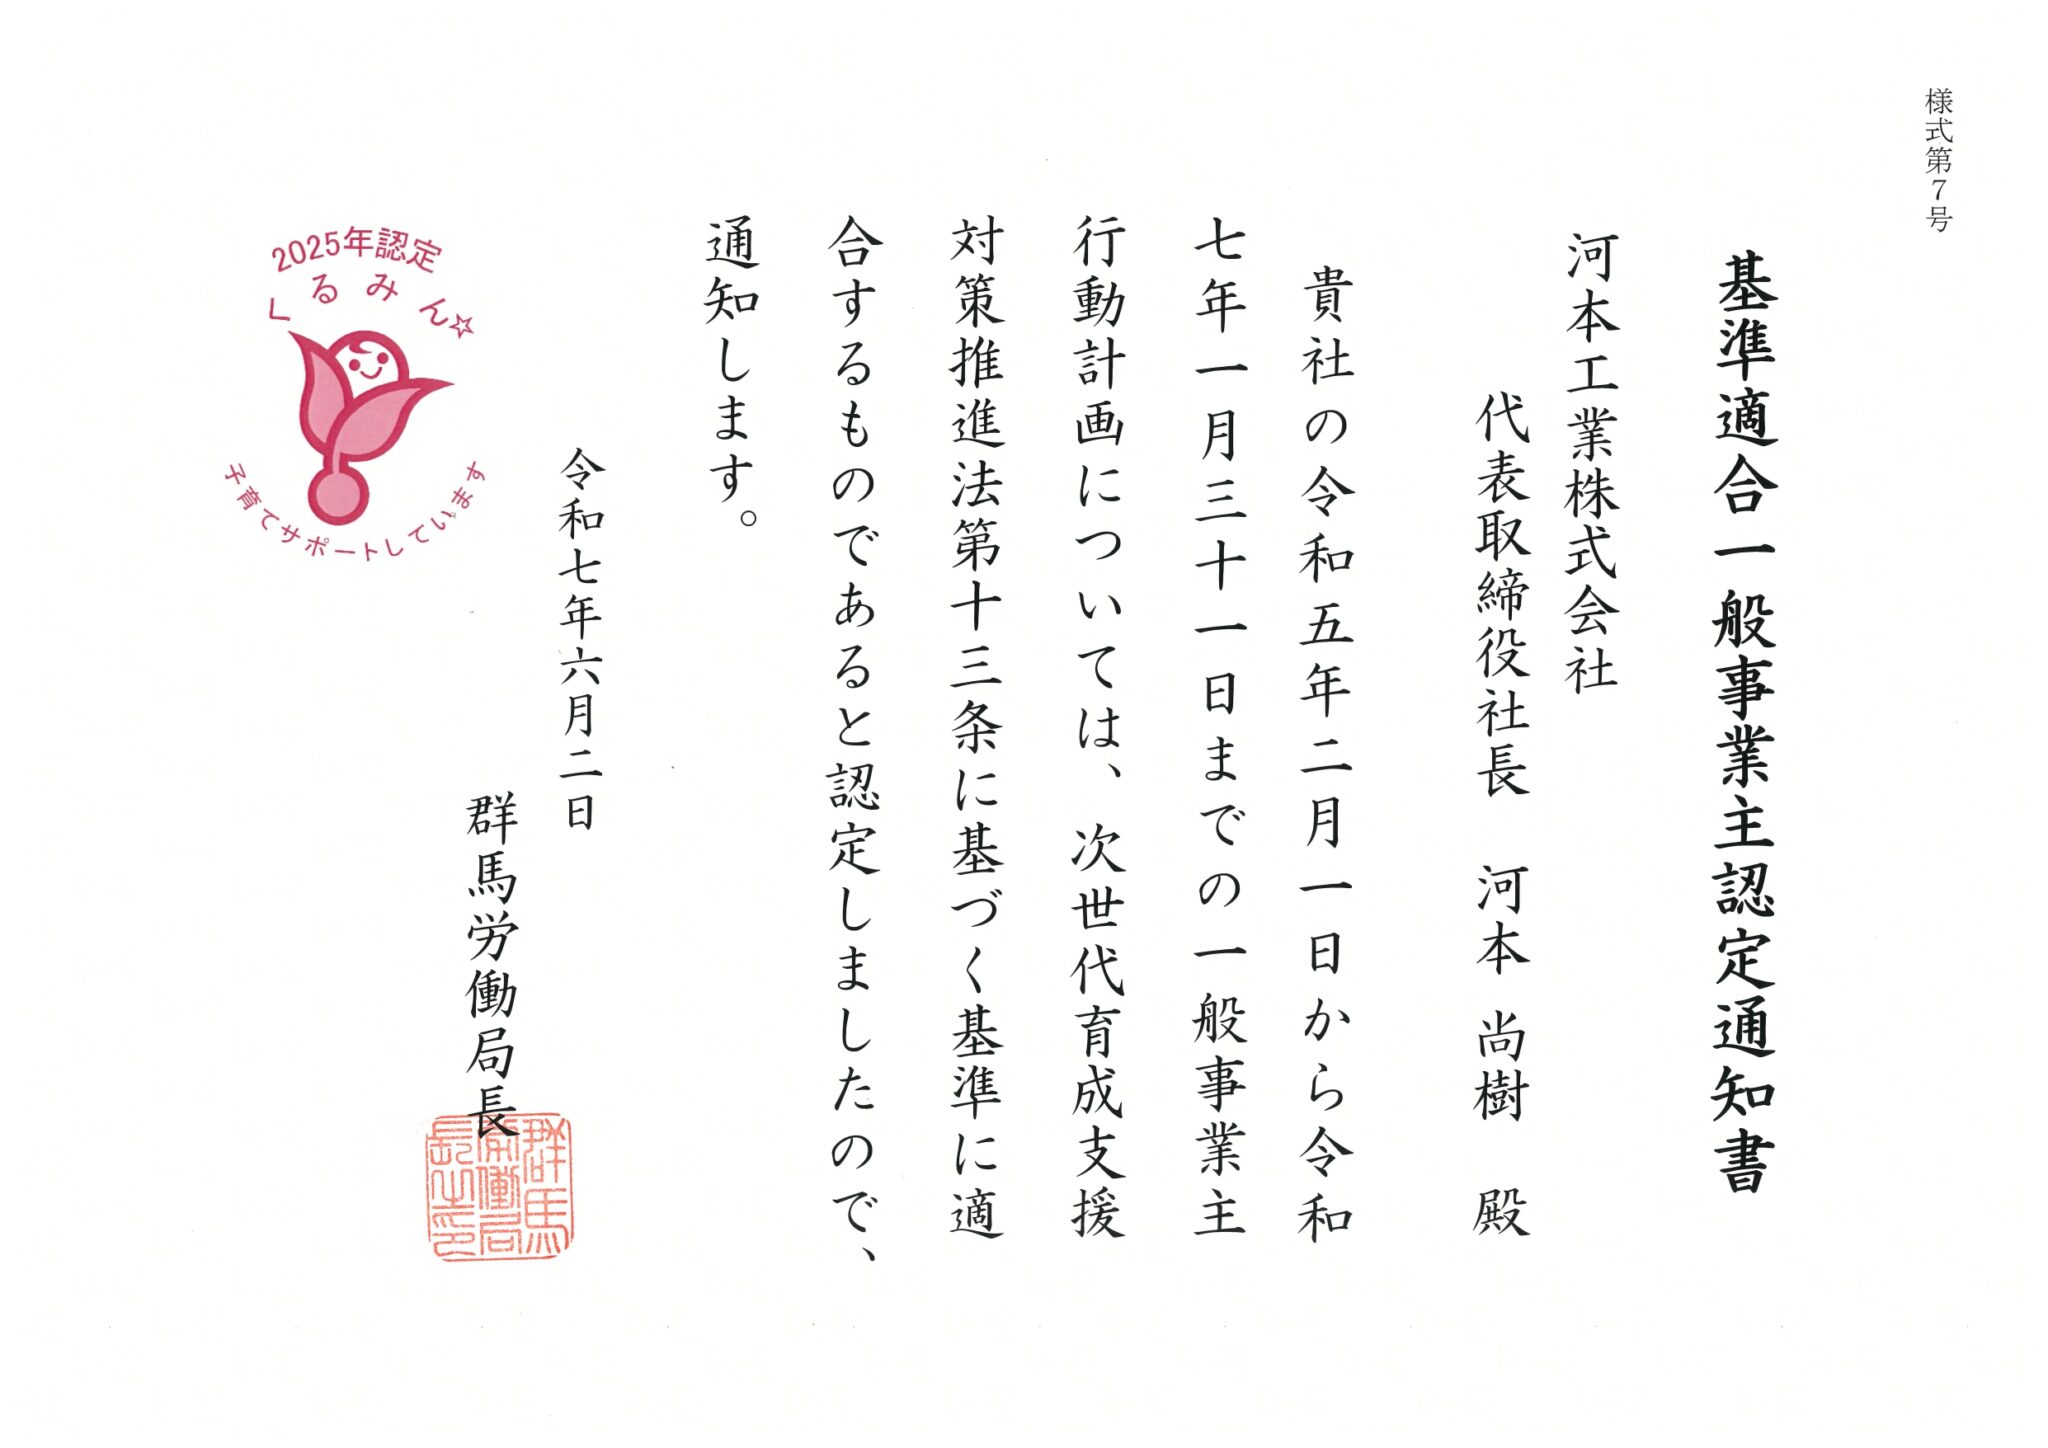 様式第7号
基準適合一般事業主認定通知書
河本工業株式会社
代表取締役社長　河本 尚樹　殿
貴社の令和五年二月一日から令和
七年一月三十一日までの一般事業主
行動計画については、次世代育成支援
対策推進法第十三条に基づく基準に適
合するものであると認定しましたので、
通知します。
令和七年六月二日
群馬労働局長
群馬
労働局
長之印
2025年認定
くるみん☆
子育てサポートしています